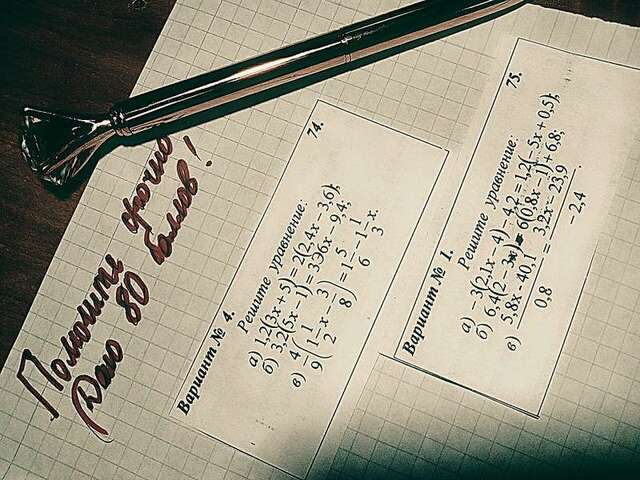 Помогите срочно
Даю 80 баллов!
Вариант № 4. 74.
Решите уравнение:
а) 1,2(3x + 5) = 2(2,4x − 3,6);
б) 3,2(5x − 1) = 3,36x − 9,4;
в) 4/9(1 1/2 x − 3/8) = 1 5/6 − 1 1/3 x.
Вариант № 1. 75.
Решите уравнение:
а) −3(2,1x − 4) − 4,2 = 1,2(−5x + 0,5);
б) 6,4(2 − 3x) = 6(0,8x − 1) + 6,8;
в) 5,8x − 40,1 / 0,8 = 3,9x − 23,9 / −2,4.